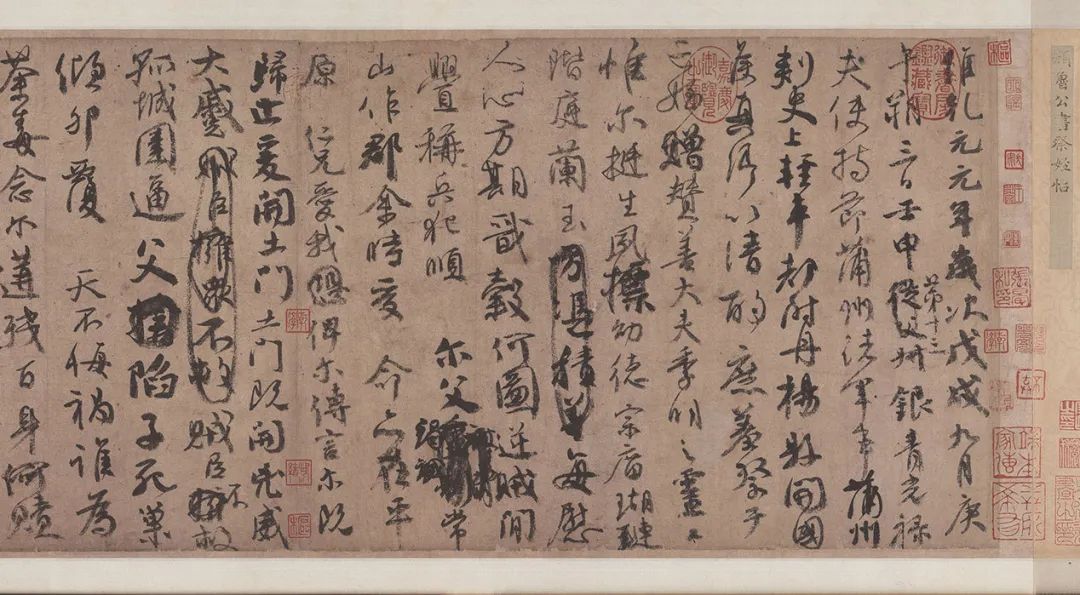 顏魯公書祭姪帖
維乾元元年歲次戊戌九月庚
午朔三日壬申第十三從父叔銀青光祿
夫使持節蒲州諸軍事蒲州
刺史上輕車都尉丹楊縣開國
侯真卿以清酌庶羞祭于
亡姪贈贊善大夫季明之靈曰
惟爾挺生夙標幼德宗廟瑚璉
階庭蘭玉方憑積善每慰
人心方期戩穀何圖逆賊間
舋稱兵犯順爾父常
山作郡余時受命亦在平
原仁兄愛我俾爾傳言爾既
歸止爰開土門土門既開凶威
大蹙賊臣擁眾不救賊臣不救
孤城圍逼父陷子死巢
傾卵覆天不悔禍誰為
荼毒念爾遘殘百身何贖